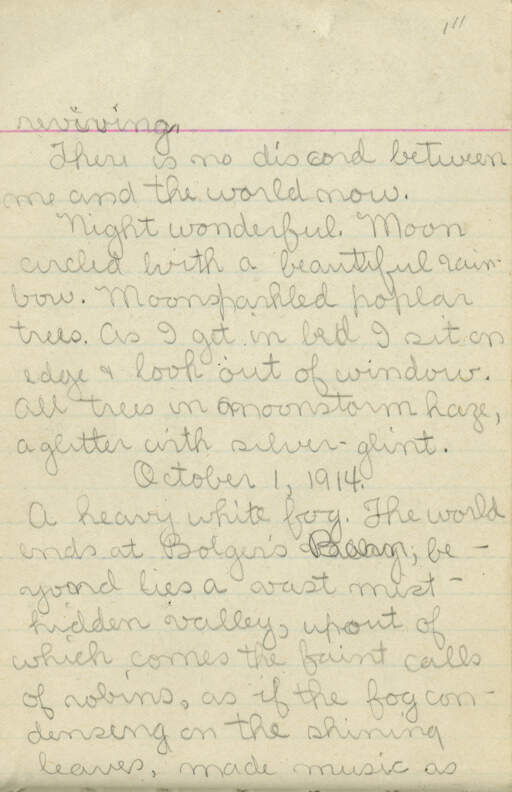 111
reviving.
There is no discord between
me and the world now.
Night wonderful. Moon
circled with a beautiful rain-
bow. Moonsparkled poplar
trees. As I get in bed I sit on
edge & look out of window.
All trees in moonstorm haze,
aglitter with silver-glint.
October 1, 1914.
A heavy white fog. The world
ends at Bolger's ; be-
yond lies a vast mist-
hidden valley, up out of
which comes the faint calls
of robins, as if the fog con-
densing on the shining
leaves, made music as